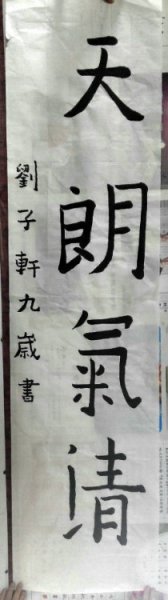 天朗氣清
劉子軒九歲書